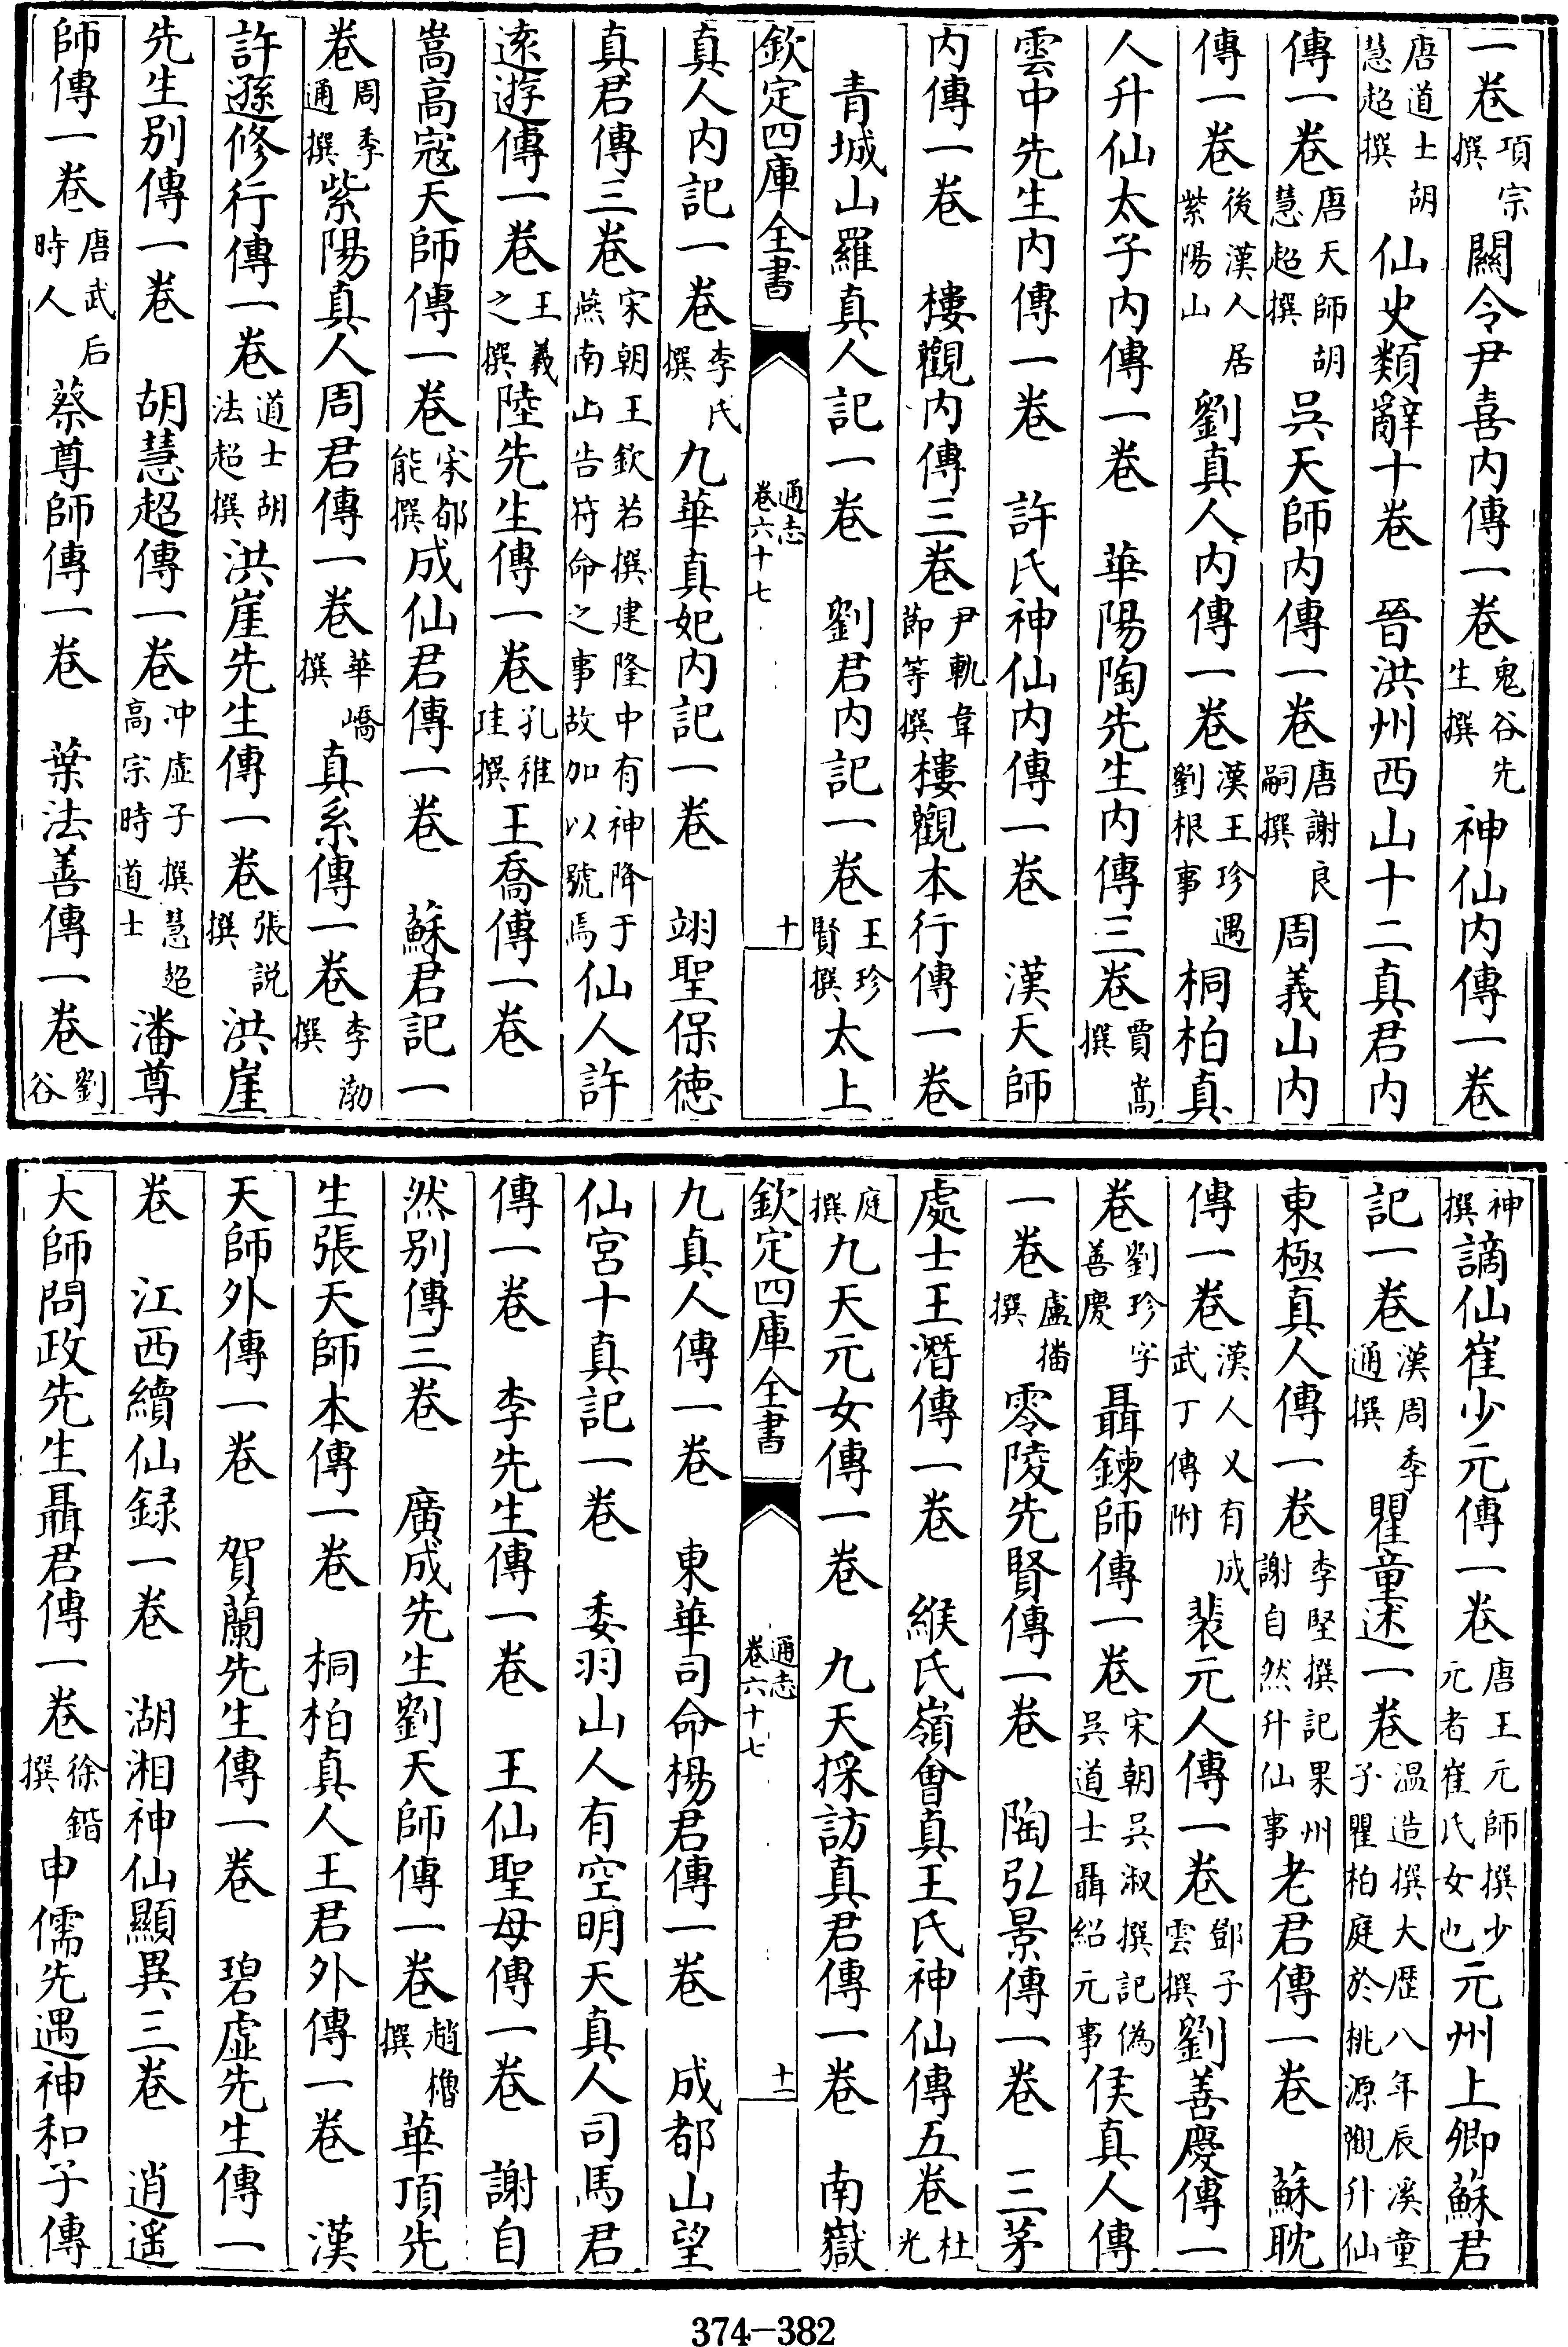 一卷項宗撰 關令尹喜内傳一卷鬼谷先生撰 神仙内傳一卷
唐道士胡慧超撰 仙史類辭十卷 晉洪州西山十二真君内
傳一卷唐天師胡慧超撰 吳天師内傳一卷唐謝良嗣撰 周義山内
傳一卷後漢人居紫陽山 劉真人内傳一卷漢王珍遇劉根事 桐柏真
人升仙太子内傳一卷 華陽陶先生内傳三卷賈嵩撰
雲中先生内傳一卷 許氏神仙内傳一卷 漢天師
内傳一卷 樓觀内傳三卷尹軌韋節等撰 樓觀本行傳一卷
青城山羅真人記一卷 劉君内記一卷王珍賢撰 太上
欽定四庫全書 通志卷六十七 十
真人内記一卷李氏撰 九華真妃内記一卷 翊聖保德
真君傳三卷宋朝王欽若撰建隆中有神降于燕南山告符命之事故加以號焉 仙人許
逺遊傳一卷王羲之撰 陸先生傳一卷孔稚珪撰 王喬傳一卷
嵩高寇天師傳一卷宋都能撰 成仙君傳一卷 蘇君記一
卷周季通撰 紫陽真人周君傳一卷華嶠撰 真系傳一卷李渤撰
許遜修行傳一卷道士胡法超撰 洪崖先生傳一卷張説撰 洪崖
先生别傳一卷 胡慧超傳一卷冲虚子撰慧超高宗時道士 潘尊
師傳一卷唐武后時人 蔡尊師傳一卷 葉法善傳一卷劉谷
神撰 謫仙崔少元傳一卷唐王元師撰少元者崔氏女也 元州上卿蘇君
記一卷漢周季通撰 瞿童述一卷温造撰大歴八年辰溪童子瞿柏庭於桃源觀升仙
東極真人傳一卷李堅撰記果州謝自然升仙事 老君傳一卷 蘇耽
傳一卷漢人又有成武丁傳附 裴元人傳一卷鄧子雲撰 劉善慶傳一
卷劉珍字善慶 聶鍊師傳一卷宋朝吳淑撰記偽吳道士聶紹元事 侯真人傳
一卷盧播撰 零陵先賢傳一卷 陶弘景傳一卷 三茅
處士王潛傳一卷 緱氏嶺㑹真王氏神仙傳五卷杜光
庭撰 九天元女傳一卷 九天採訪真君傳一卷 南嶽
欽定四庫全書 通志卷六十七 十一
九真人傳一卷 東華司命楊君傳一卷 成都山望
仙宮十真記一卷 委羽山人有空明天真人司馬君
傳一卷 李先生傳一卷 王仙聖母傳一卷 謝自
然别傳三卷 廣成先生劉天師傳一卷趙櫓撰 華頂先
生張天師本傳一卷 桐柏真人王君外傳一卷 漢
天師外傳一卷 賀蘭先生傳一卷 碧虚先生傳一
卷 江西續仙録一卷 湖湘神仙顯異三卷 逍遥
大師問政先生聶君傳一卷徐鍇撰 申儒先遇神和子傳
374-382